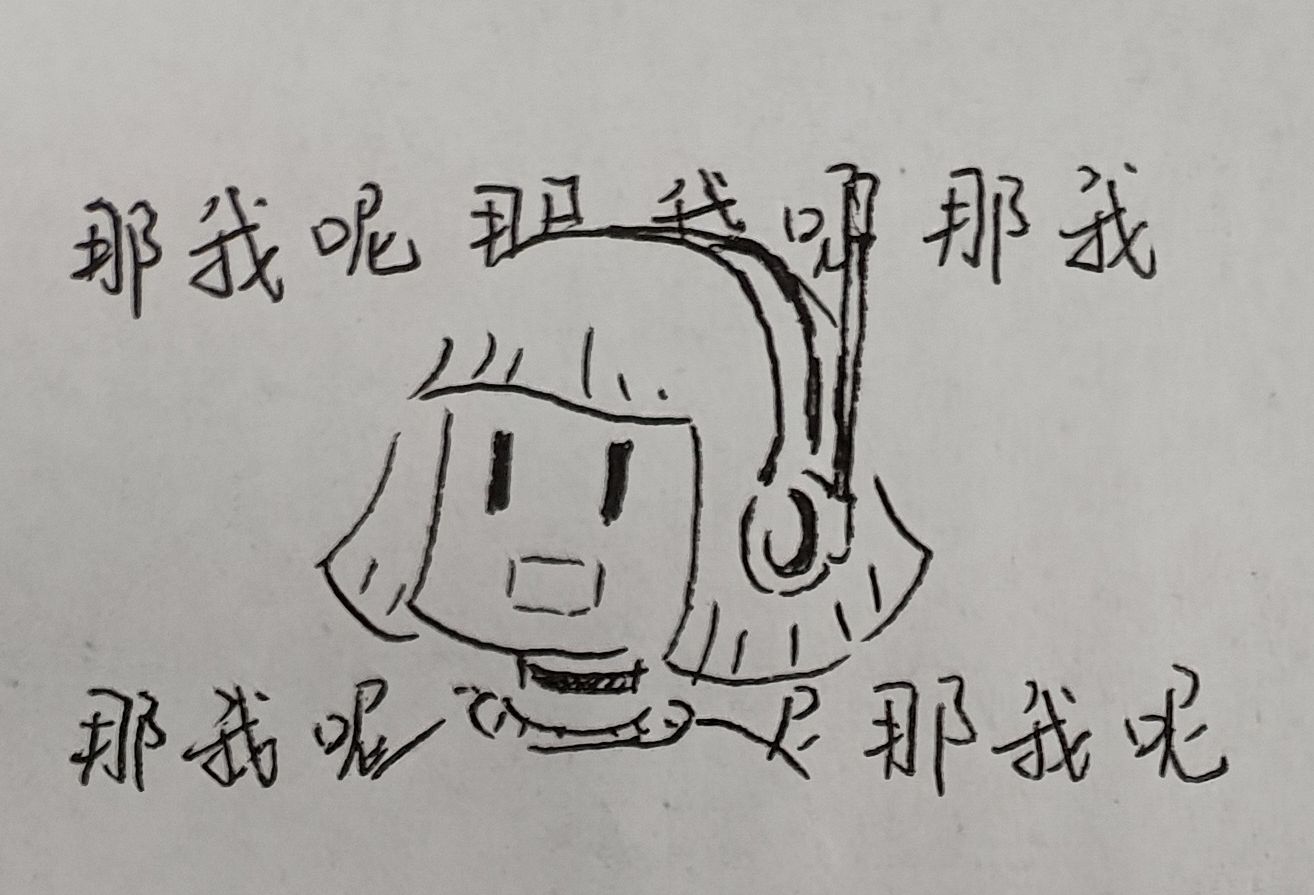 那我呢那我呢那我
那我呢 那我呢